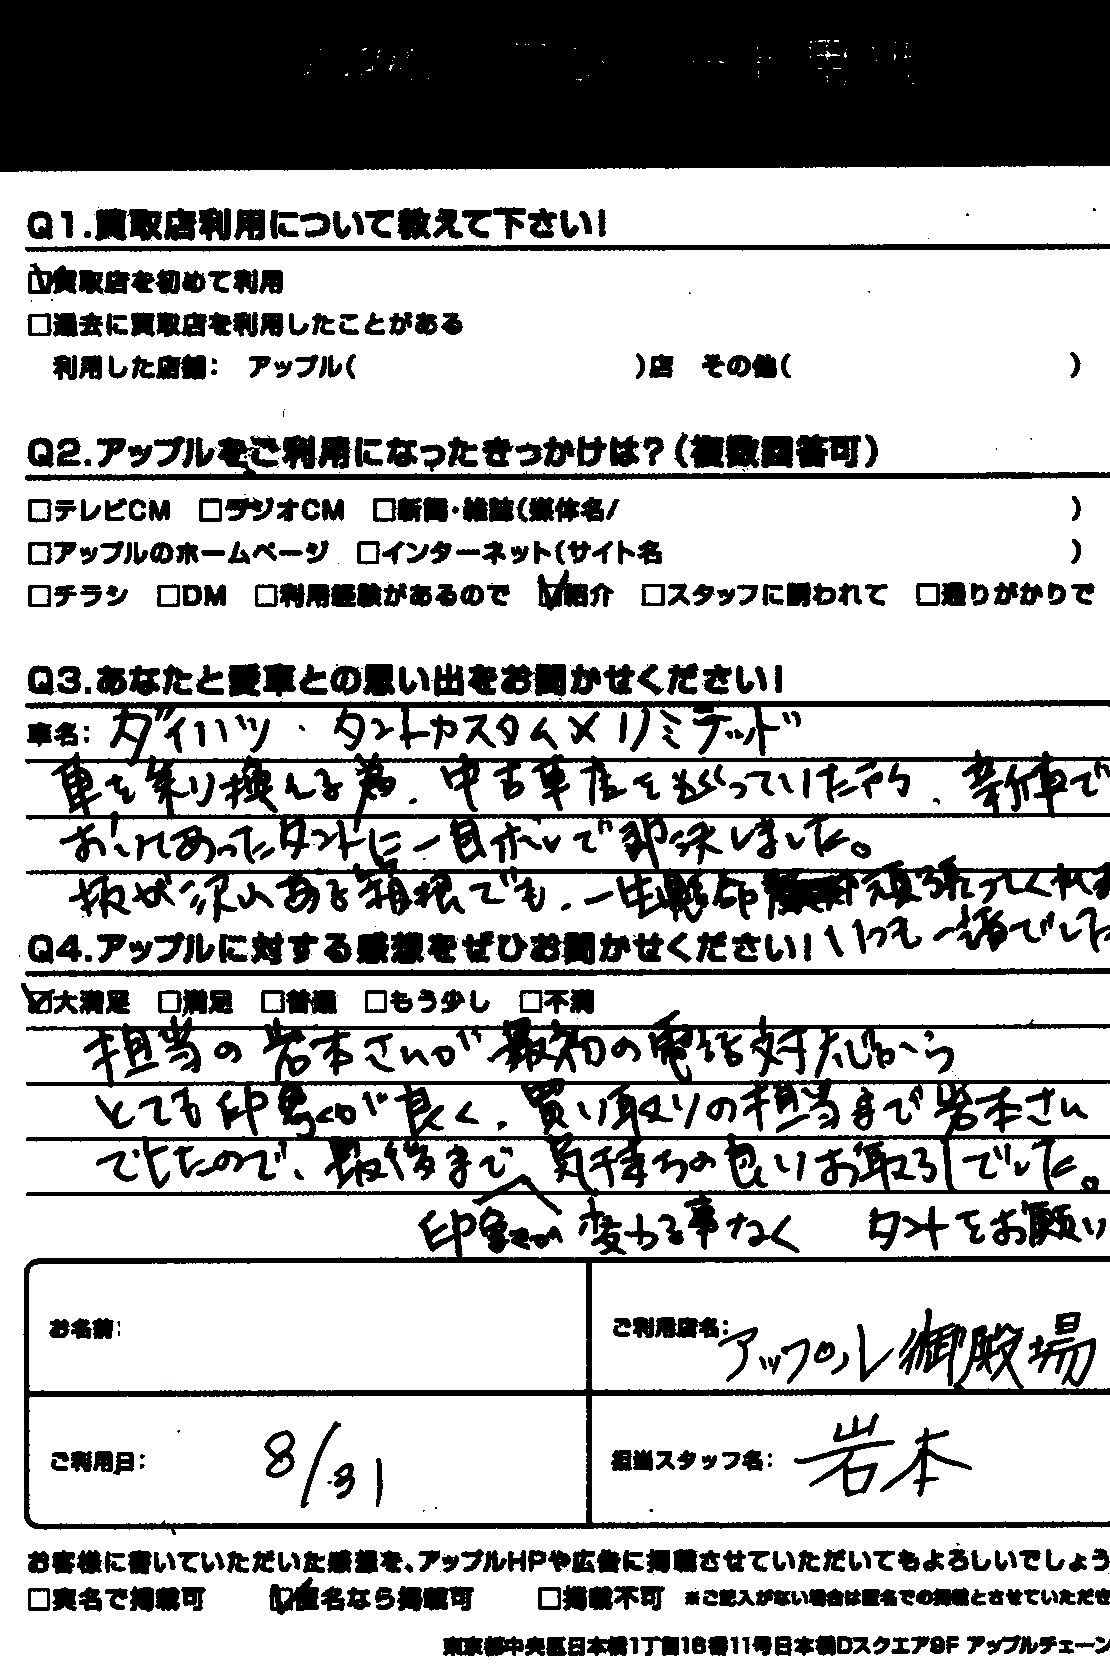 Q1.買取店利用について教えて下さい!
☑買取店を初めて利用
□過去に買取店を利用したことがある
利用した店舗: アップル( )店 その他( )
Q2.アップルをご利用になったきっかけは?(複数回答可)
□テレビCM □ラジオCM □新聞・雑誌(媒体名/ )
□アップルのホームページ □インターネット(サイト名 )
□チラシ □DM □利用経験があるので ☑紹介 □スタッフに誘われて □通りがかりで
Q3.あなたと愛車との思い出をお聞かせください!
車名: ダイハツ・タントカスタムXリミテッド
車を乗り換える為、中古車店をめぐっていた所、新車で
おいてあったタントに一目ボレで即決しました。
坂が沢山ある箱根でも、一生懸命 頑張ってくれま
いつも一緒でした
Q4.アップルに対する感想をぜひお聞かせください!
☑大満足 □満足 □普通 □もう少し □不満
担当の岩本さんが最初の電話対応から
とても印象が良く、買い取りの担当まで岩本さん
でしたので、最後まで気持ちの良いお取引でした。
印象が変わる事なく タントをお願い
お名前:
ご利用店名: アップル御殿場
ご利用日: 8/31
担当スタッフ名: 岩本
お客様に書いていただいた感想を、アップルHPや広告に掲載させていただいてもよろしいでしょう
□実名で掲載可 ☑匿名なら掲載可 □掲載不可 ※ご記入がない場合は匿名での掲載とさせていただき
東京都中央区日本橋1丁目16番11号日本橋Dスクエア9F アップルチェーン